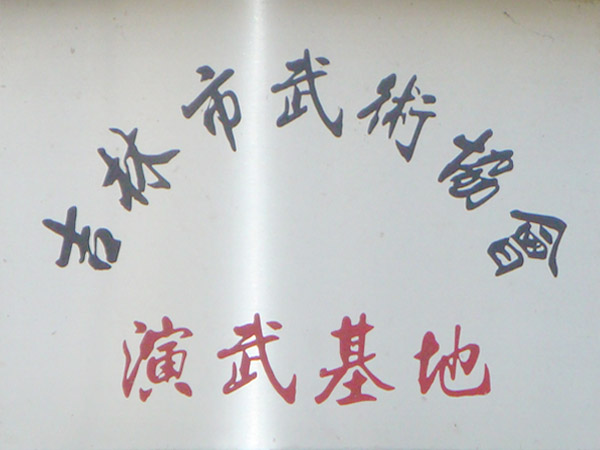 吉林市武術協會
演武基地